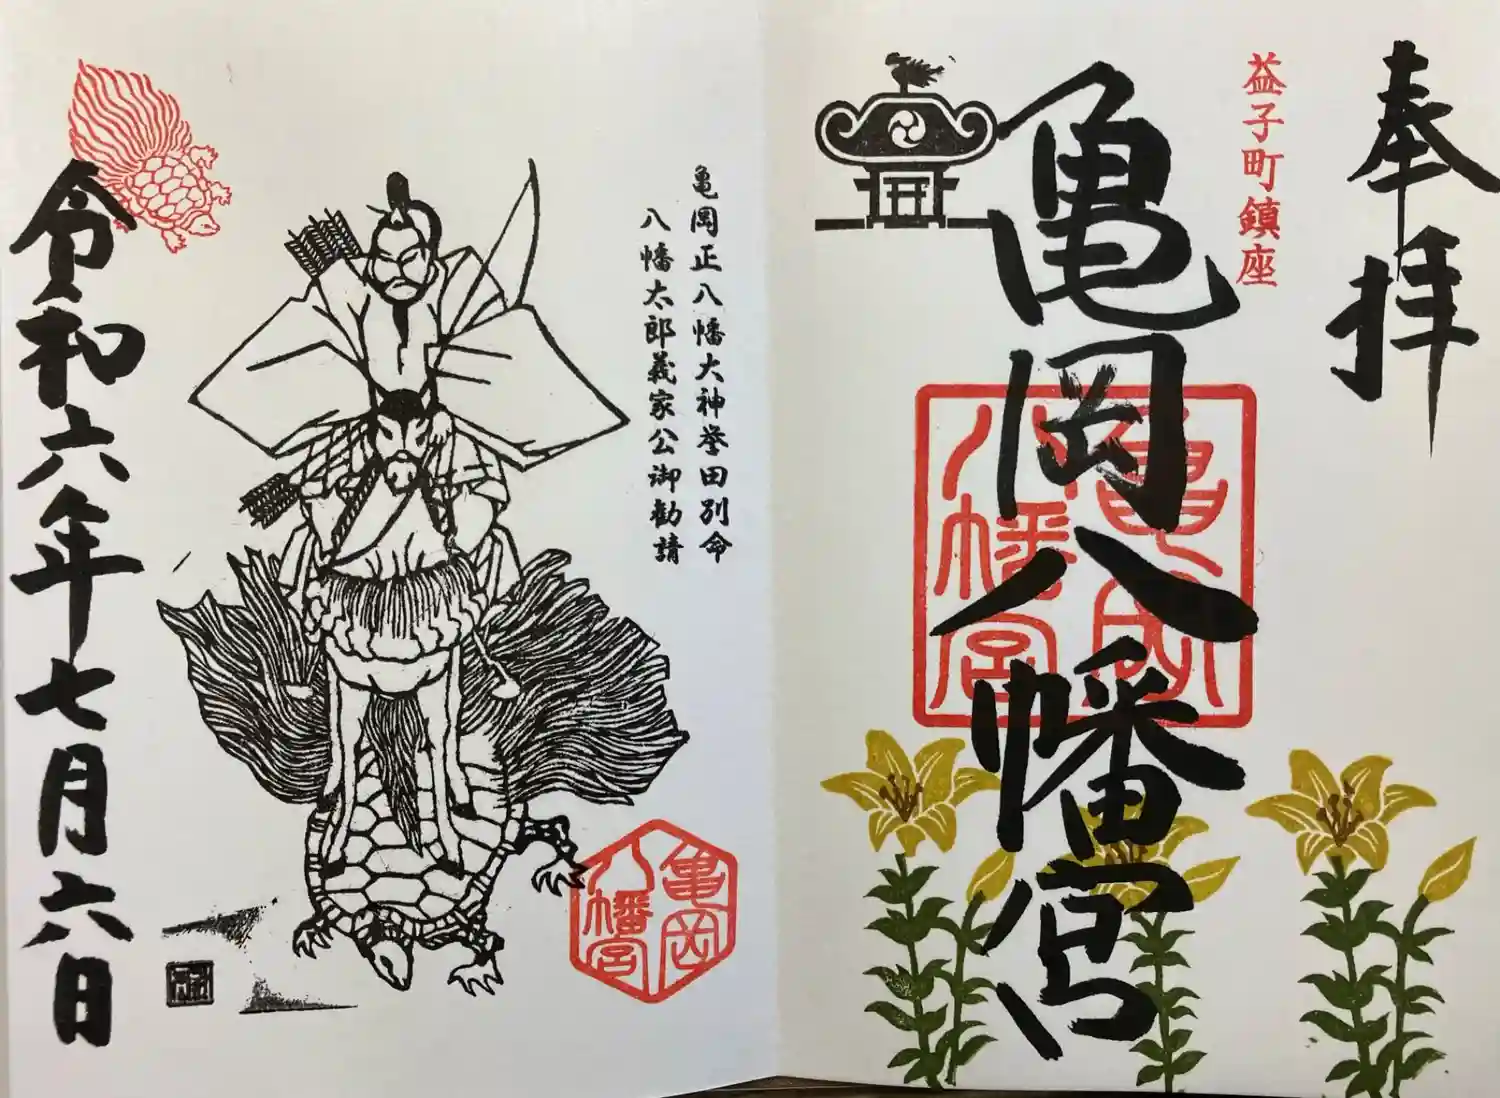 奉拝
益子町鎮座
亀岡八幡宮
亀岡
八幡宮
亀岡正八幡大神誉田別命
八幡太郎義家公御勧請
亀岡
八幡宮
令和六年七月六日